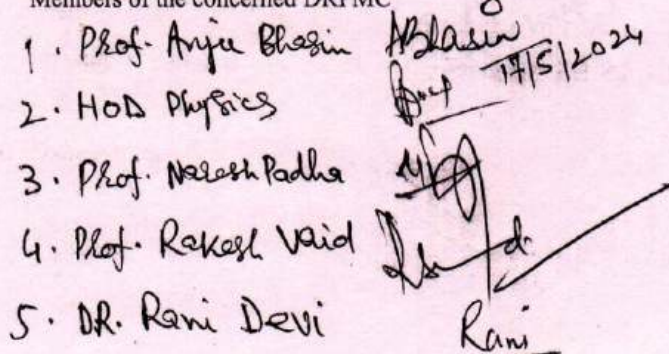 Members of the concerned DRPMC
1. Prof. Anju Bhasin ABhasin
17/5/2024
2. HOD Physics
3. Prof. Naresh Padha
4. Prof. Rakesh Vaid
5. DR. Rani Devi Rani